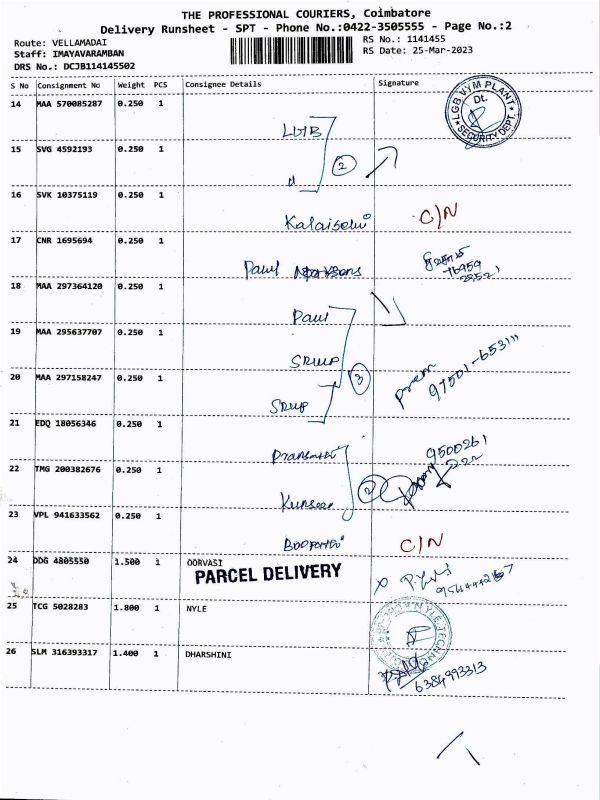 THE PROFESSIONAL COURIERS, Coimbatore
Delivery Runsheet - SPT - Phone No.:0422-3505555 - Page No.:2
Route: VELLAMADAI
RS No.: 1141455
Staff: IMAYAVARAMBAN
RS Date: 25-Mar-2023
DRS No.: DCJB114145502
S No Consignment No Weight PCS Consignee Details Signature
14 MAA 570085287 0.250 1
LGB VYM PLANT
Dt.
SECURITY DEPT.
15 SVG 4592193 0.250 1
2
16 SVK 10375119 0.250 1
Kalaiselvi C/N
17 CNR 1695694 0.250 1
Paul
18 MAA 297364120 0.250 1
Paul
19 MAA 295637707 0.250 1
3
20 MAA 297158247 0.250 1
Prem
97501-65311
21 EDQ 18056346 0.250 1
9500261
22 TMG 200382676 0.250 1
2
23 VPL 941633562 0.250 1
C/N
24 DDG 4805550 1.500 1 OORVASI
PARCEL DELIVERY
25 TCG 5028283 1.800 1 NYLE
26 SLM 316393317 1.400 1 DHARSHINI
6384993313